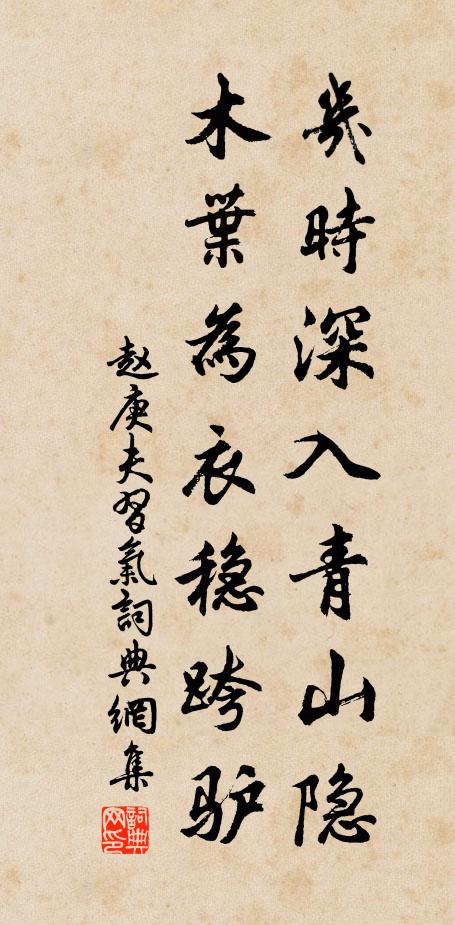 幾時深入青山隐
木葉為衣稳跨驴
赵庚夫習氣詞典網集
詞典网印